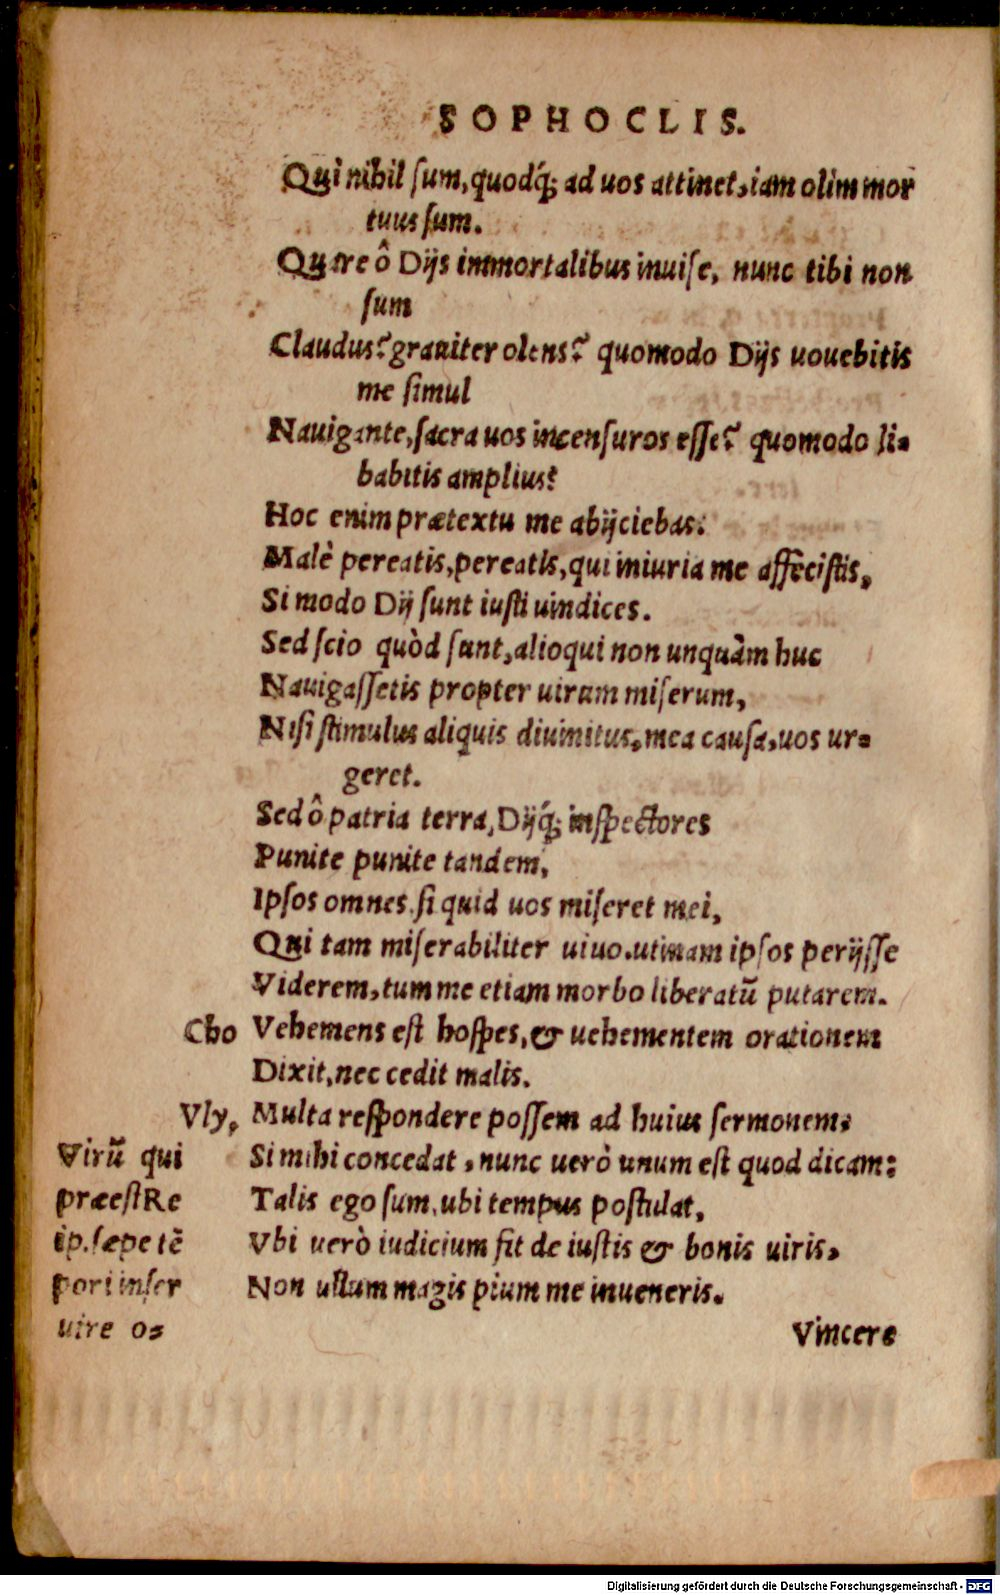 SOPHOCLIS.
Qui nihil ſum, quodq́; ad uos attinet, iam olim mor
tuus ſum.
Quare ô Dijs immortalibus inuiſe, nunc tibi non
ſum
Claudus? grauiter olens? quomodo Dijs uouebitis
me ſimul
Nauigante, ſacra uos incenſuros eſſe? quomodo li-
babitis amplius?
Hoc enim prætextu me abijciebas.
Malè pereatis, pereatis, qui iniuria me affeciſtis,
Si modo Dij ſunt iuſti uindices.
Sed ſcio quòd ſunt, alioqui non unquàm huc
Nauigaſſetis propter uirum miſerum,
Niſi ſtimulus aliquis diuinitus, mea cauſa, uos ur-
geret.
Sed ô patria terra, Dijq́; inſpectores
Punite punite tandem,
Ipſos omnes, ſi quid uos miſeret mei,
Qui tam miſerabiliter uiuo. utinam ipſos perijſſe
Viderem, tum me etiam morbo liberatũ putarem.
Cho Vehemens eſt hoſpes, & uehementem orationem
Dixit, nec cedit malis.
Vly, Multa reſpondere poſſem ad huius ſermonem,
Si mihi concedat, nunc uerò unum eſt quod dicam:
Talis ego ſum, ubi tempus poſtulat,
Vbi uerò iudicium fit de iuſtis & bonis uiris,
Non ullum magis pium me inueneris.
Virũ qui
præeſt Re
ip. ſæpe tẽ
pori inſer
uire o-
Vincere
Digitalisierung gefördert durch die Deutsche Forschungsgemeinschaft - DFG